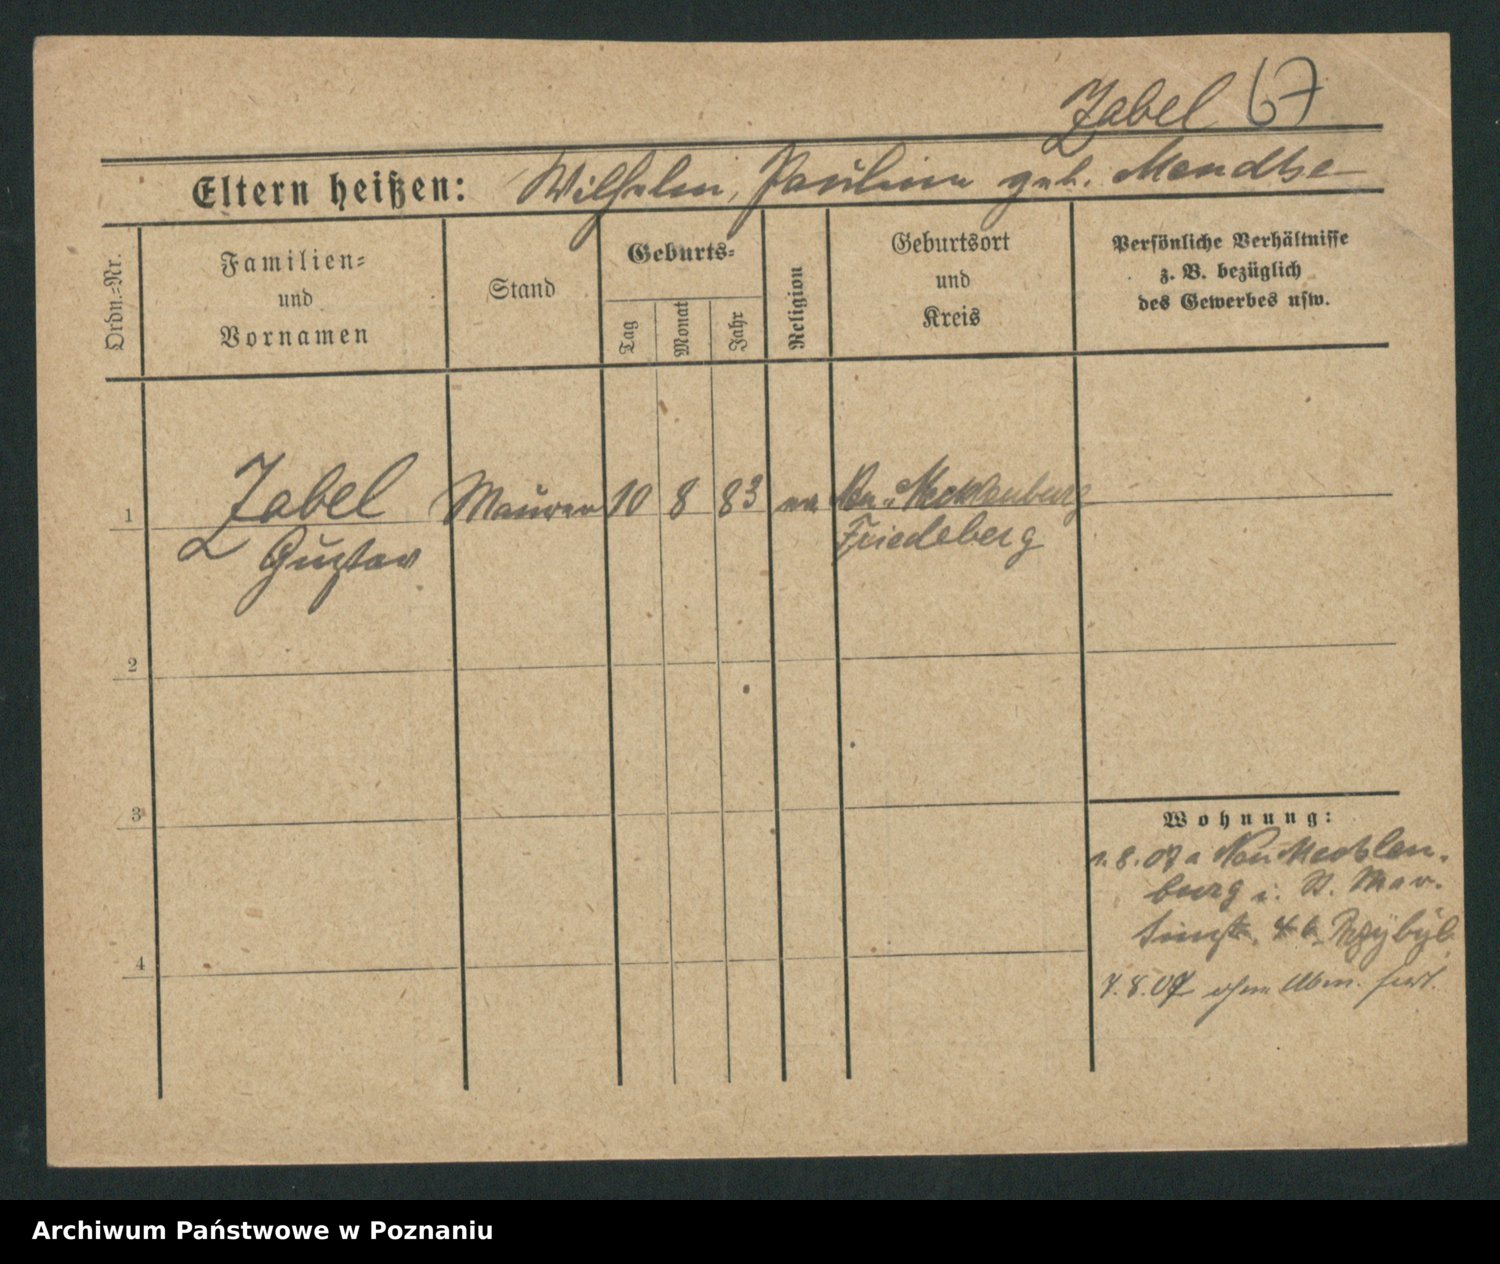 Zabel 67
Eltern heißen: Wilhelm, Pauline geb. Mendtse
Ordn.=Nr.
Familien=
und
Vornamen
Stand
Geburts=
Tag
Monat
Jahr
Religion
Geburtsort
und
Kreis
Persönliche Verhältnisse
z. B. bezüglich
des Gewerbes usw.
1 Zabel Maurer 10 8 83 ev Neu-Mecklenburg
Gustav Friedeberg
2
3
4
Wohnung:
1.8.07 a Neu Mecklen-
burg i. St. Mar-
tinstr. Przybyl
7.8.07 ohne Abm. fort.
Archiwum Państwowe w Poznaniu